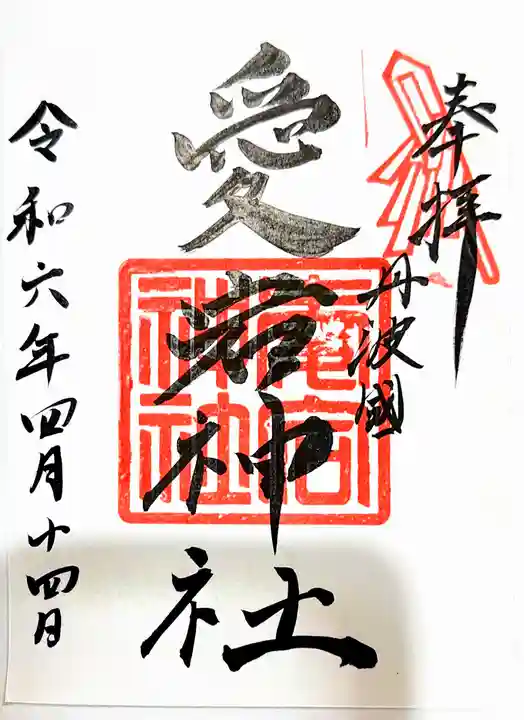 奉拝
丹波國
愛宕神社
愛宕神社
令和六年四月十四日